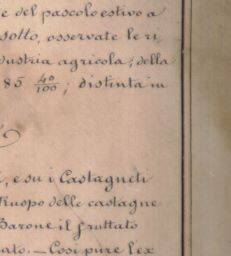 e del pascolo estivo a
sotto, osservate le ri
dustria agricola; della
85 40/100; distinta in
, e su i Castagneti
Ruspo delle castagne
Barone il fruttato
ato. — Così pure l'ex